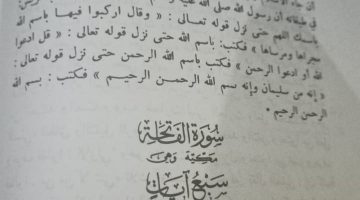 أن جاء الا
في طبقاته أن رسول الله صلى الله عليه و
باسمك اللهم حتى نزل قوله تعالى : « وقال اركبوا فيها باسم
مجراها ومرساها » فكتب: باسم الله حتى نزل قوله تعالى : « قل ادعوا
الله أو ادعوا الرحمن » فكتب باسم الله الرحمن حتى نزل قوله تعالى :
« إنه من سليمان وإنه بسم الله الرحمن الرحيم » فكتب : بسم الله
الرحمن الرحيم .
سورة الفاتحة
مكية وهي
سبع آيات